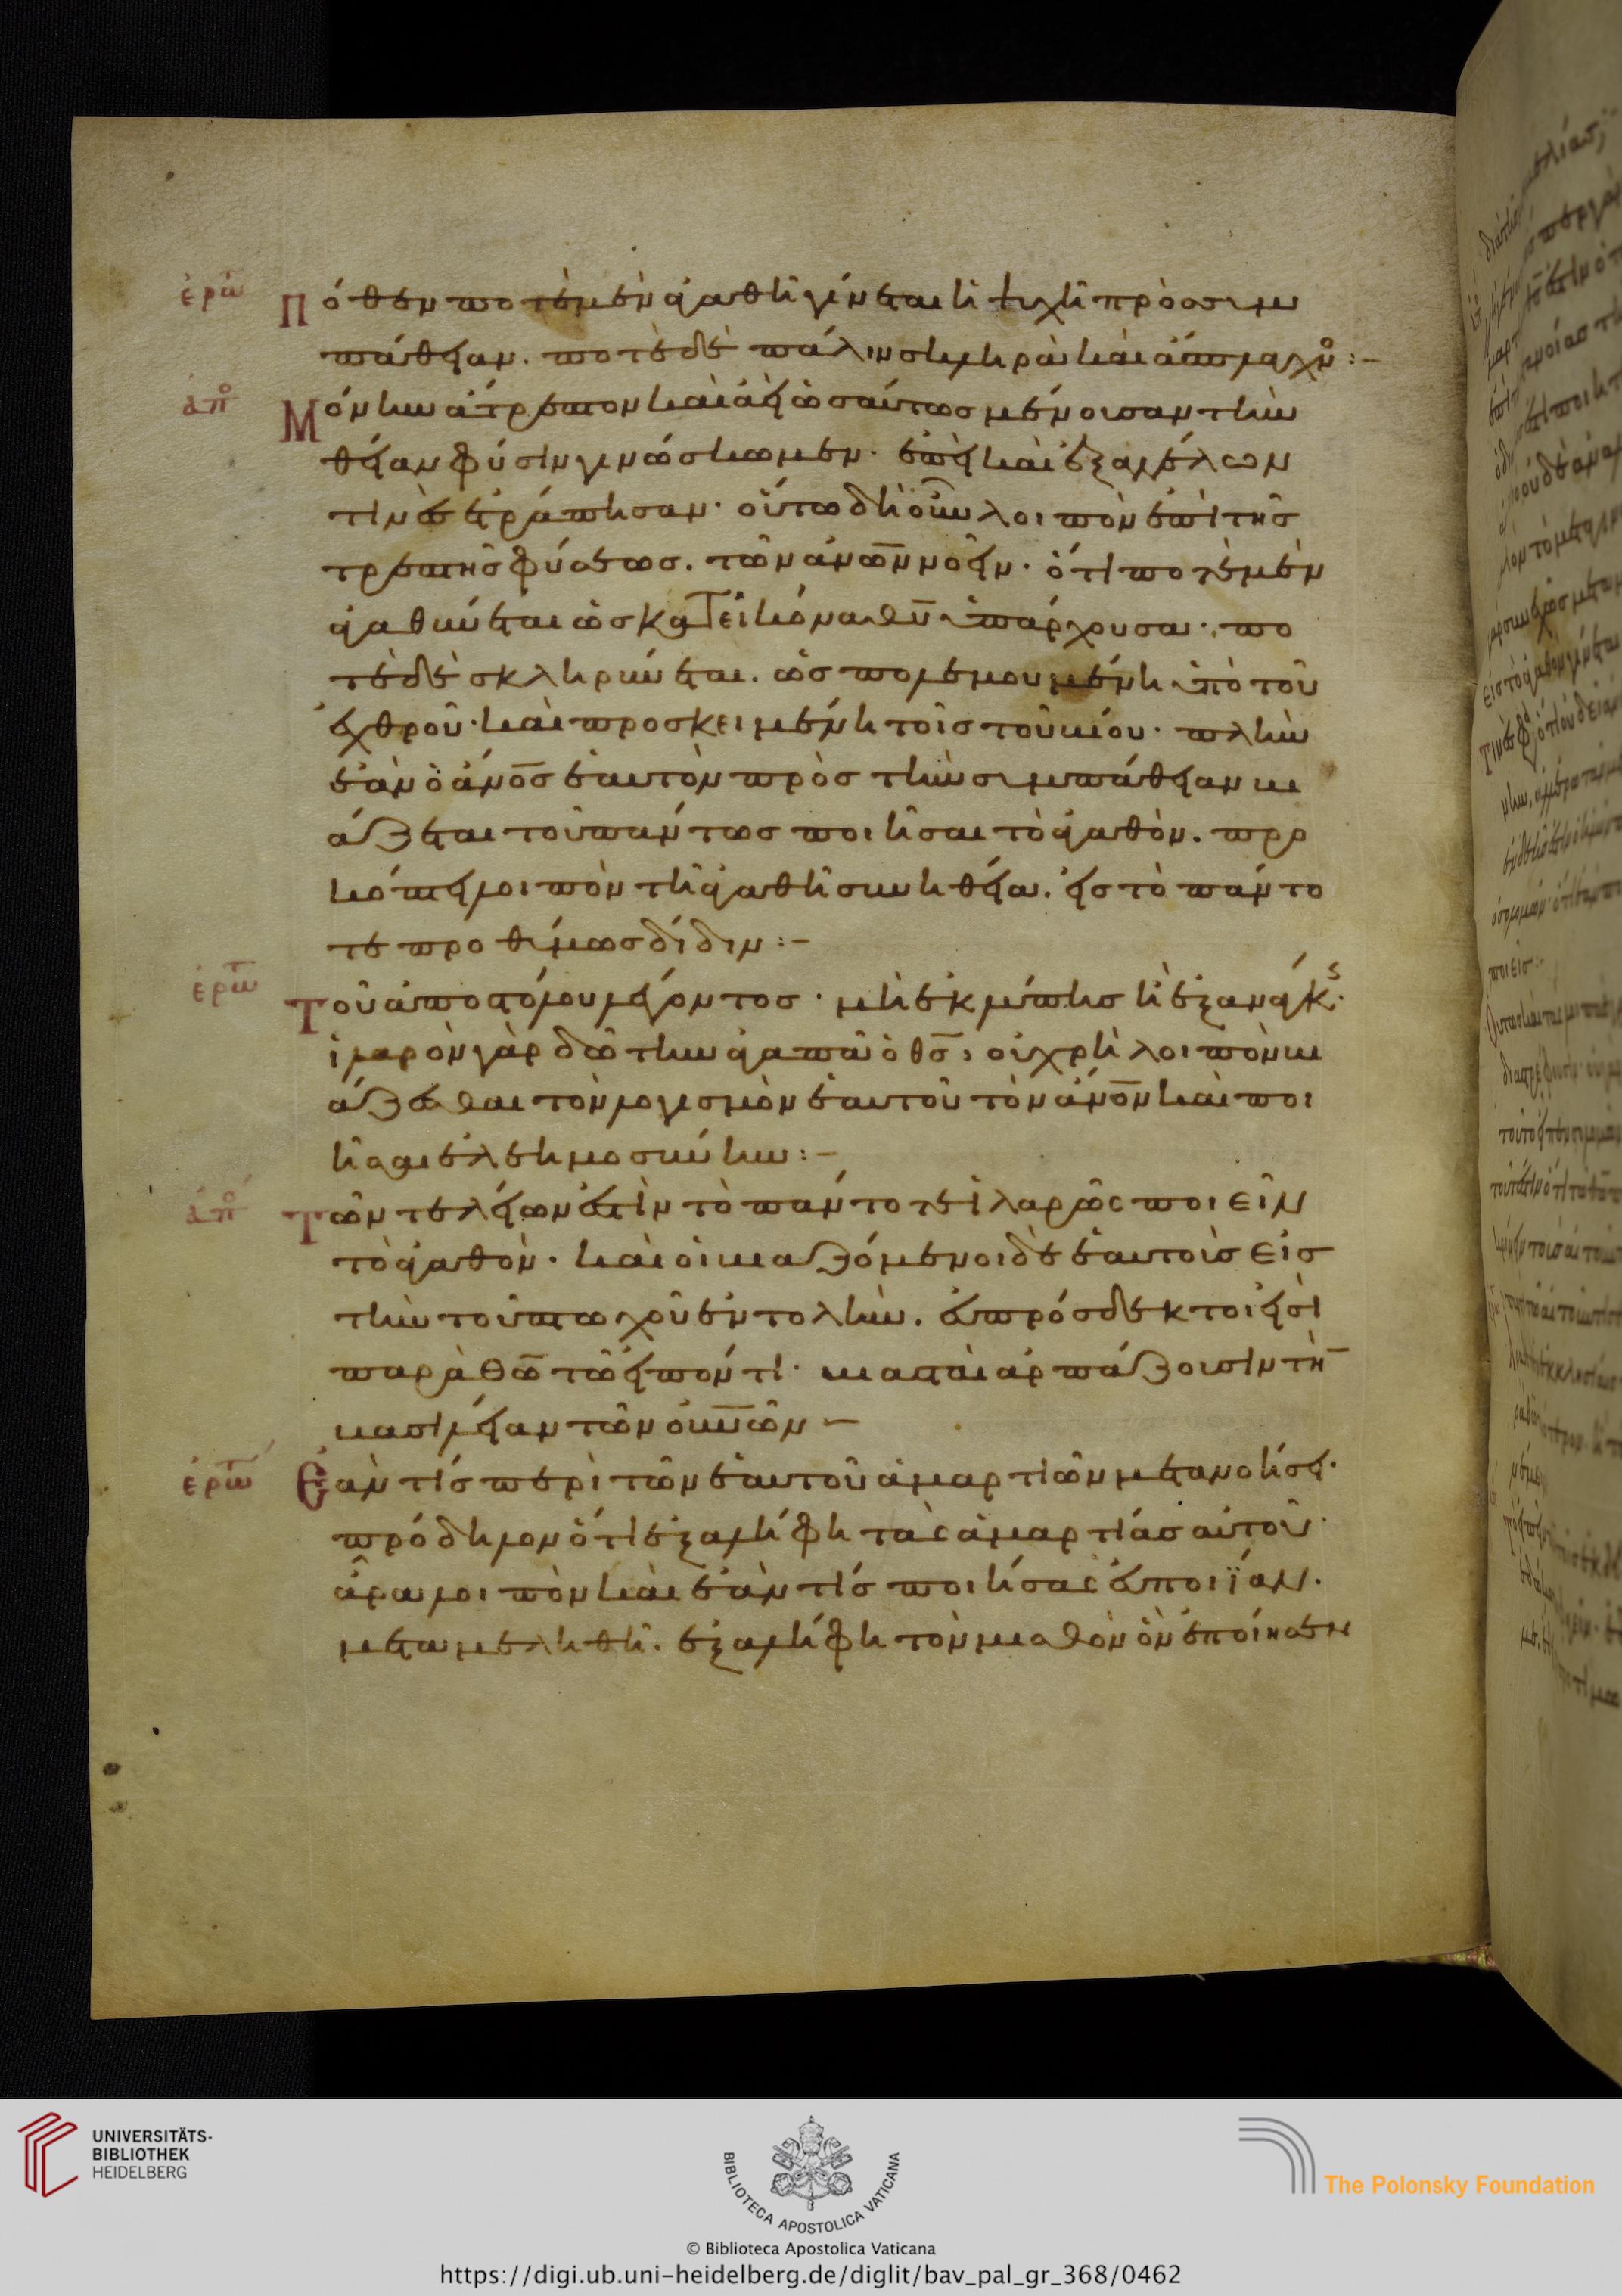 ἐρω Πόθεν ποτὲ μὲν ἀγαθὴ γίνεται ἡ ψυχὴ πρὸς συμ
πάθειαν. ποτὲ δὲ πάλιν σκληρὰ καὶ ἄσπλαγχν:-
ἀπ Μόνην ἄτρεπτον καὶ ἀεὶ ὡσαύτως μένουσαν τὴν
θείαν φύσιν γινώσκωμεν. ἐπεὶ καὶ ἐξ ἀγγέλων
τινὲς ἐτράπησαν. οὕτω δὴ οὖν λοιπὸν ἐπὶ τῆς
τρεπτῆς φύσεως. τῶν ἀνων νοεῖν. ὅτι ποτὲ μὲν
ἀγαθύνεται ὡς κατ εἰκόνα θυ ὑπάρχουσα. πο
τὲ δὲ σκληρύνεται. ὡς πολεμουμένη ὑπὸ τοῦ
ἐχθροῦ. καὶ προσκειμένη τοῖς τοῦ βίου. πλὴν
ἐὰν ὁ ἄνος ἑαυτὸν πρὸς τὴν συμπάθειαν βι
άζεται τοῦ πάντως ποιῆσαι τὸ ἀγαθὸν. προ
κόπτει λοιπὸν τῆ ἀγαθῆ συνηθεία. εἰς τὸ πάντο
τε προθύμως δίδιν:-
ἐρω Τοῦ ἀποστόλου λέγοντος. μὴ ἐκ λύπης ἢ ἐξ ἀνάγκς.
ἱλαρὸν γὰρ δότην ἀγαπᾶ ὁ θς, οὐ χρὴ λοιπὸν βι
άζεσθαι τὸν λογισμὸν ἑαυτοῦ τὸν ἄνον καὶ ποι
ῆσαι ἐλεημοσύνην:-
ἀπ Τῶν τελείων ἐστὶν τὸ πάντοτε ἱλαρῶς ποιεῖν
τὸ ἀγαθὸν. καὶ οἱ βιαζόμενοι δὲ ἑαυτοὺς εἰς
τὴν τοῦ πτωχοῦ ἐντολὴν. εὐπρόσδεκτοι εἰσὶ
παρὰ θω τῶ εἰπόντι. βιασταὶ ἁρπάζουσιν τὴν
βασιλείαν τῶν οὐνων -
ἐρω Ἐάν τίς περὶ τῶν ἑαυτοῦ ἁμαρτιῶν μετανοήσει.
πρόδηλον ὅτι ἐξαλήφη τὰς ἁμαρτίας αὐτοῦ.
ἆρα λοιπὸν καὶ ἐάν τίς ποιήσας εὐποιΐαν.
μεταμεληθῆ. ἐξαλήφη τὸν μισθὸν ὃν ἐποίησεν
UNIVERSITÄTS-
BIBLIOTHEK
HEIDELBERG
BIBLIOTECA APOSTOLICA VATICANA
The Polonsky Foundation
© Biblioteca Apostolica Vaticana
https://digi.ub.uni-heidelberg.de/diglit/bav_pal_gr_368/0462